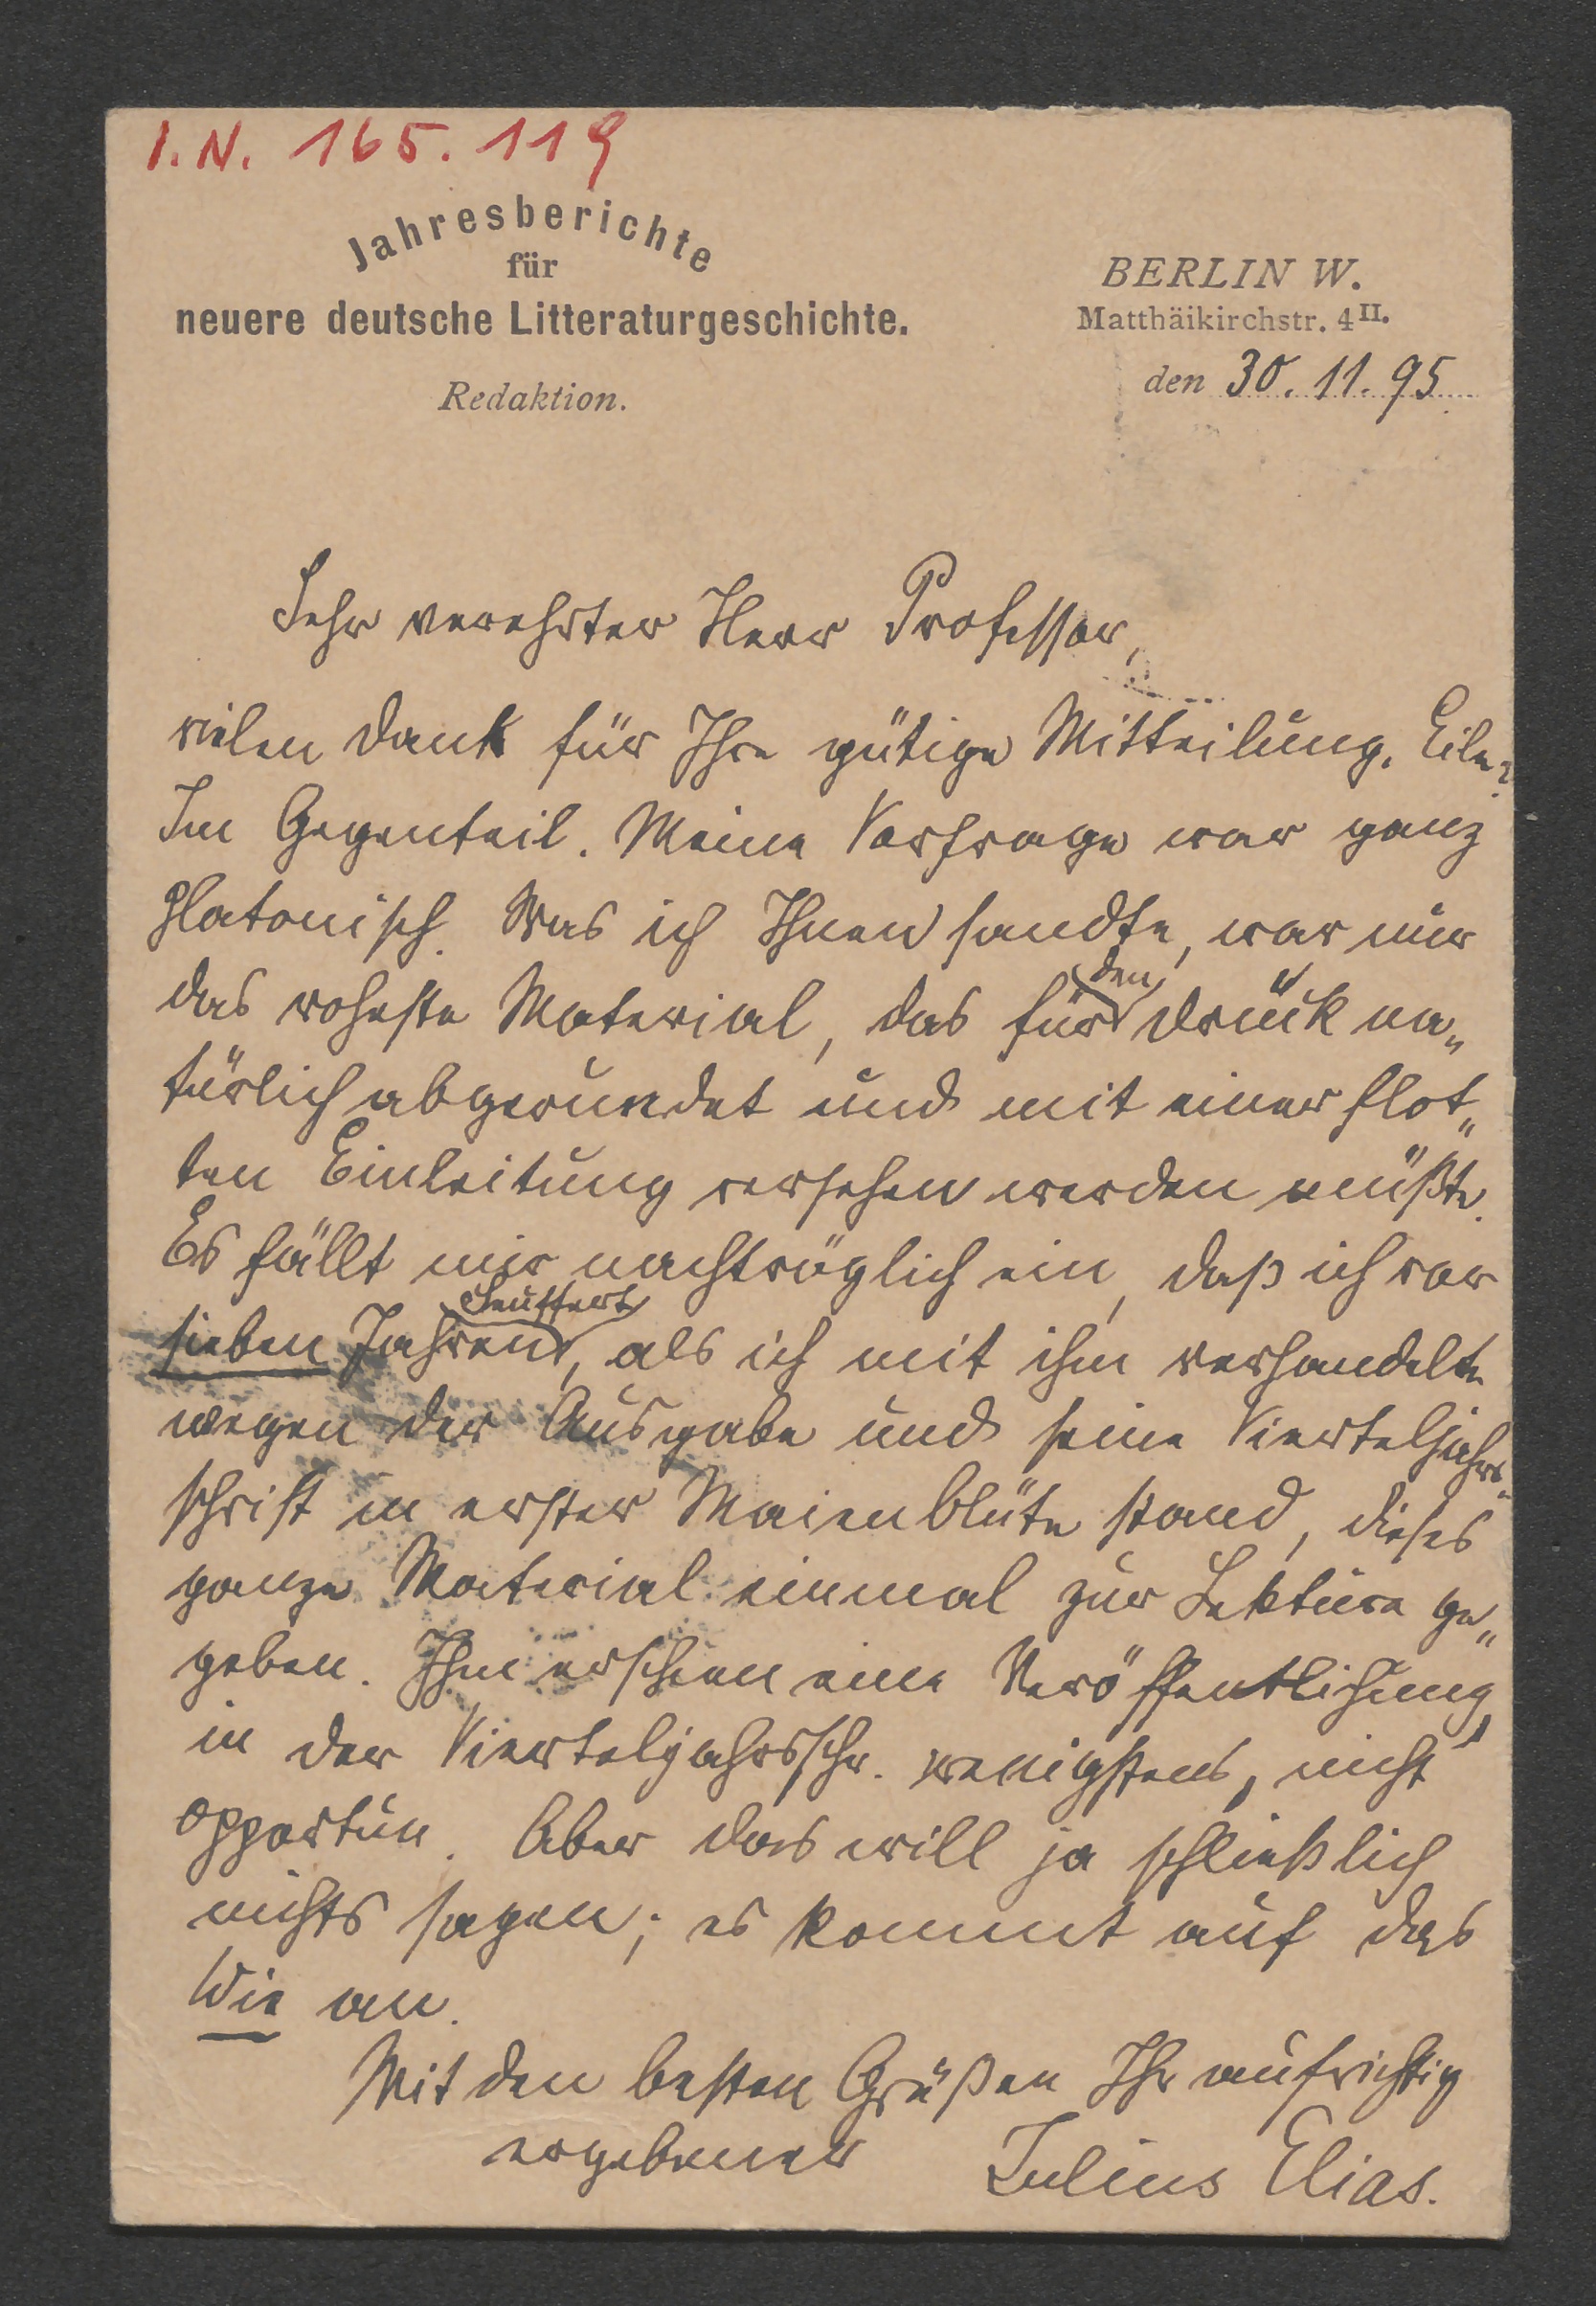 I.N. 165.119
Jahresberichte
für
neuere deutsche Litteraturgeschichte.
Redaktion.
BERLIN W.
Matthäikirchstr. 4II.
den 30. 11. 95
Sehr verehrter Herr Professor,
vielen Dank für Ihre gütige Mitteilung. Eile?
Im Gegenteil. Meine Vorfrage war ganz
platonisch. Was ich Ihnen sandte, war nur
das roheste Material, das für den Druck na„
türlich abgerundet und mit einer flot„
ten Einleitung versehen werden müßte.
Es fällt mir nachträglich ein, daß ich vor
sieben Jahren Seuffert, als ich mit ihm verhandelte
wegen der Ausgabe und seine Vierteljahrs„
schrift in erster Maienblüte stand, dieses
ganze Material einmal zur Lektüre ge„
geben. Ihm erschien eine Veröffentlichung,
in der Vierteljahrsschr. wenigstens, nicht
opportun. Aber das will ja schließlich
nichts sagen; es kommt auf das
Wie an.
Mit den besten Grüßen Ihr aufrichtig
ergebener Julius Elias.